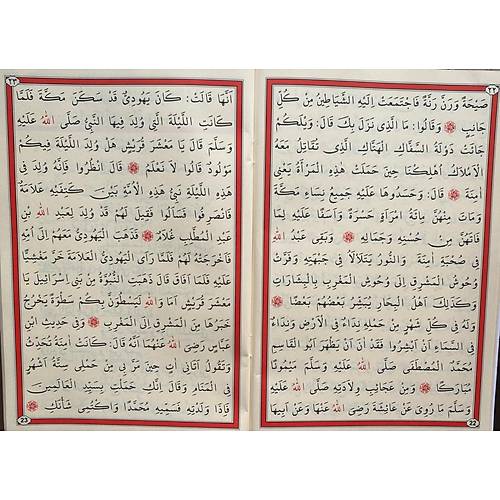 ٢٢
صَيْحَةً وَرَنَّ رَنَّةً فَاجْتَمَعَتْ اِلَيْهِ الشَّيَاطِينُ مِنْ كُلِّ
جَانِبٍ وَقَالُوا: مَا الَّذِي نَزَلَ بِكَ قَالَ: وَيْلَكُمْ
جَائَتْ دَوْلَةُ السَّفَّاكِ الْهَتَّاكِ الَّذِي تُقَاتِلُ مَعَهُ
الْاَمْلَاكُ اَهْلَكَتْنَا حِينَ حَمَلَتْ هٰذِهِ الْمَرْأَةُ يَعْنِي
اٰمِنَةَ قَالَ: وَحَسَدُوهَا عَلَيْهِ جَمِيعُ نِسَاءِ مَكَّةَ
وَمَاتَ مِنْهُنَّ مِائَةُ امْرَاَةٍ حَسْرَةً وَاَسَفًا عَلَيْهِ لِمَا
فَاتَهُنَّ مِنْ حُسْنِهِ وَجَمَالِهِ وَبَقِيَ عَبْدُ اللهِ
فِي صُحْبَةِ اٰمِنَةَ وَالنُّورُ يَتَلَأْلَأُ فِي جَبْهَتِهِ وَفَرَّتْ
وُحُوشُ الْمَشْرِقِ اِلَى وُحُوشِ الْمَغْرِبِ بِالْبِشَارَاتِ
وَكَذٰلِكَ اَهْلُ الْبِحَارِ يُبَشِّرُ بَعْضُهُمْ بَعْضًا
وَلَهُ فِي كُلِّ شَهْرٍ مِنْ حَمْلِهِ نِدَاءٌ فِي الْاَرْضِ وَنِدَاءٌ
فِي السَّمَاءِ اَنْ اَبْشِرُوا فَقَدْ اٰنَ اَنْ يَظْهَرَ اَبُو الْقَاسِمِ
مُحَمَّدٌ الْمُصْطَفَى صَلَّى اللهُ عَلَيْهِ وَسَلَّمَ مَيْمُونًا
مُبَارَكًا وَمِنْ عَجَائِبِ وِلَادَتِهِ صَلَّى اللهُ عَلَيْهِ
وَسَلَّمَ مَا رُوِيَ عَنْ عَائِشَةَ رَضِيَ اللهُ عَنْهَا وَعَنْ اَبِيهَا
22
٢٣
اَنَّهَا قَالَتْ: كَانَ يَهُودِيٌّ قَدْ سَكَنَ مَكَّةَ فَلَمَّا
كَانَتِ اللَّيْلَةُ الَّتِي وُلِدَ فِيهَا النَّبِيُّ صَلَّى اللهُ عَلَيْهِ
وَسَلَّمَ قَالَ يَا مَعْشَرَ قُرَيْشٍ هَلْ وُلِدَ اللَّيْلَةَ فِيكُمْ
مَوْلُودٌ قَالُوا لَا نَعْلَمُ قَالَ انْظُرُوا فَاِنَّهُ وُلِدَ فِي
هٰذِهِ اللَّيْلَةِ نَبِيُّ هٰذِهِ الْاُمَّةِ بَيْنَ كَتِفَيْهِ عَلَامَةٌ
فَانْصَرَفُوا فَسَأَلُوا فَقِيلَ لَهُمْ قَدْ وُلِدَ لِعَبْدِ اللهِ بْنِ
عَبْدِ الْمُطَّلِبِ غُلَامٌ فَذَهَبَ الْيَهُودِيُّ مَعَهُمْ اِلَى اُمِّهِ
فَاَخْرَجَتْهُ لَهُمْ فَلَمَّا رَاَى الْيَهُودِيُّ الْعَلَامَةَ خَرَّ مَغْشِيًّا
عَلَيْهِ فَلَمَّا اَفَاقَ قَالَ ذَهَبَتِ النُّبُوَّةُ مِنْ بَنِي اِسْرَائِيلَ يَا
مَعْشَرَ قُرَيْشٍ اَمَا وَاللهِ لَيَسْطُوَنَّ بِكُمْ سَطْوَةً يَخْرُجُ
خَبَرُهَا مِنَ الْمَشْرِقِ اِلَى الْمَغْرِبِ وَفِي حَدِيثِ ابْنِ
عَبَّاسٍ رَضِيَ اللهُ عَنْهُمَا اَنَّهُ قَالَ: كَانَتْ اٰمِنَةُ تُحَدِّثُ
وَتَقُولُ اَتَانِي اٰتٍ حِينَ مَرَّ بِي مِنْ حَمْلِي سِتَّةُ اَشْهُرٍ
فِي الْمَنَامِ وَقَالَ اِنَّكِ حَمَلْتِ بِسَيِّدِ الْعَالَمِينَ
فَاِذَا وَلَدْتِهِ فَسَمِّيهِ مُحَمَّدًا وَاكْتُمِي شَأْنَكِ
23